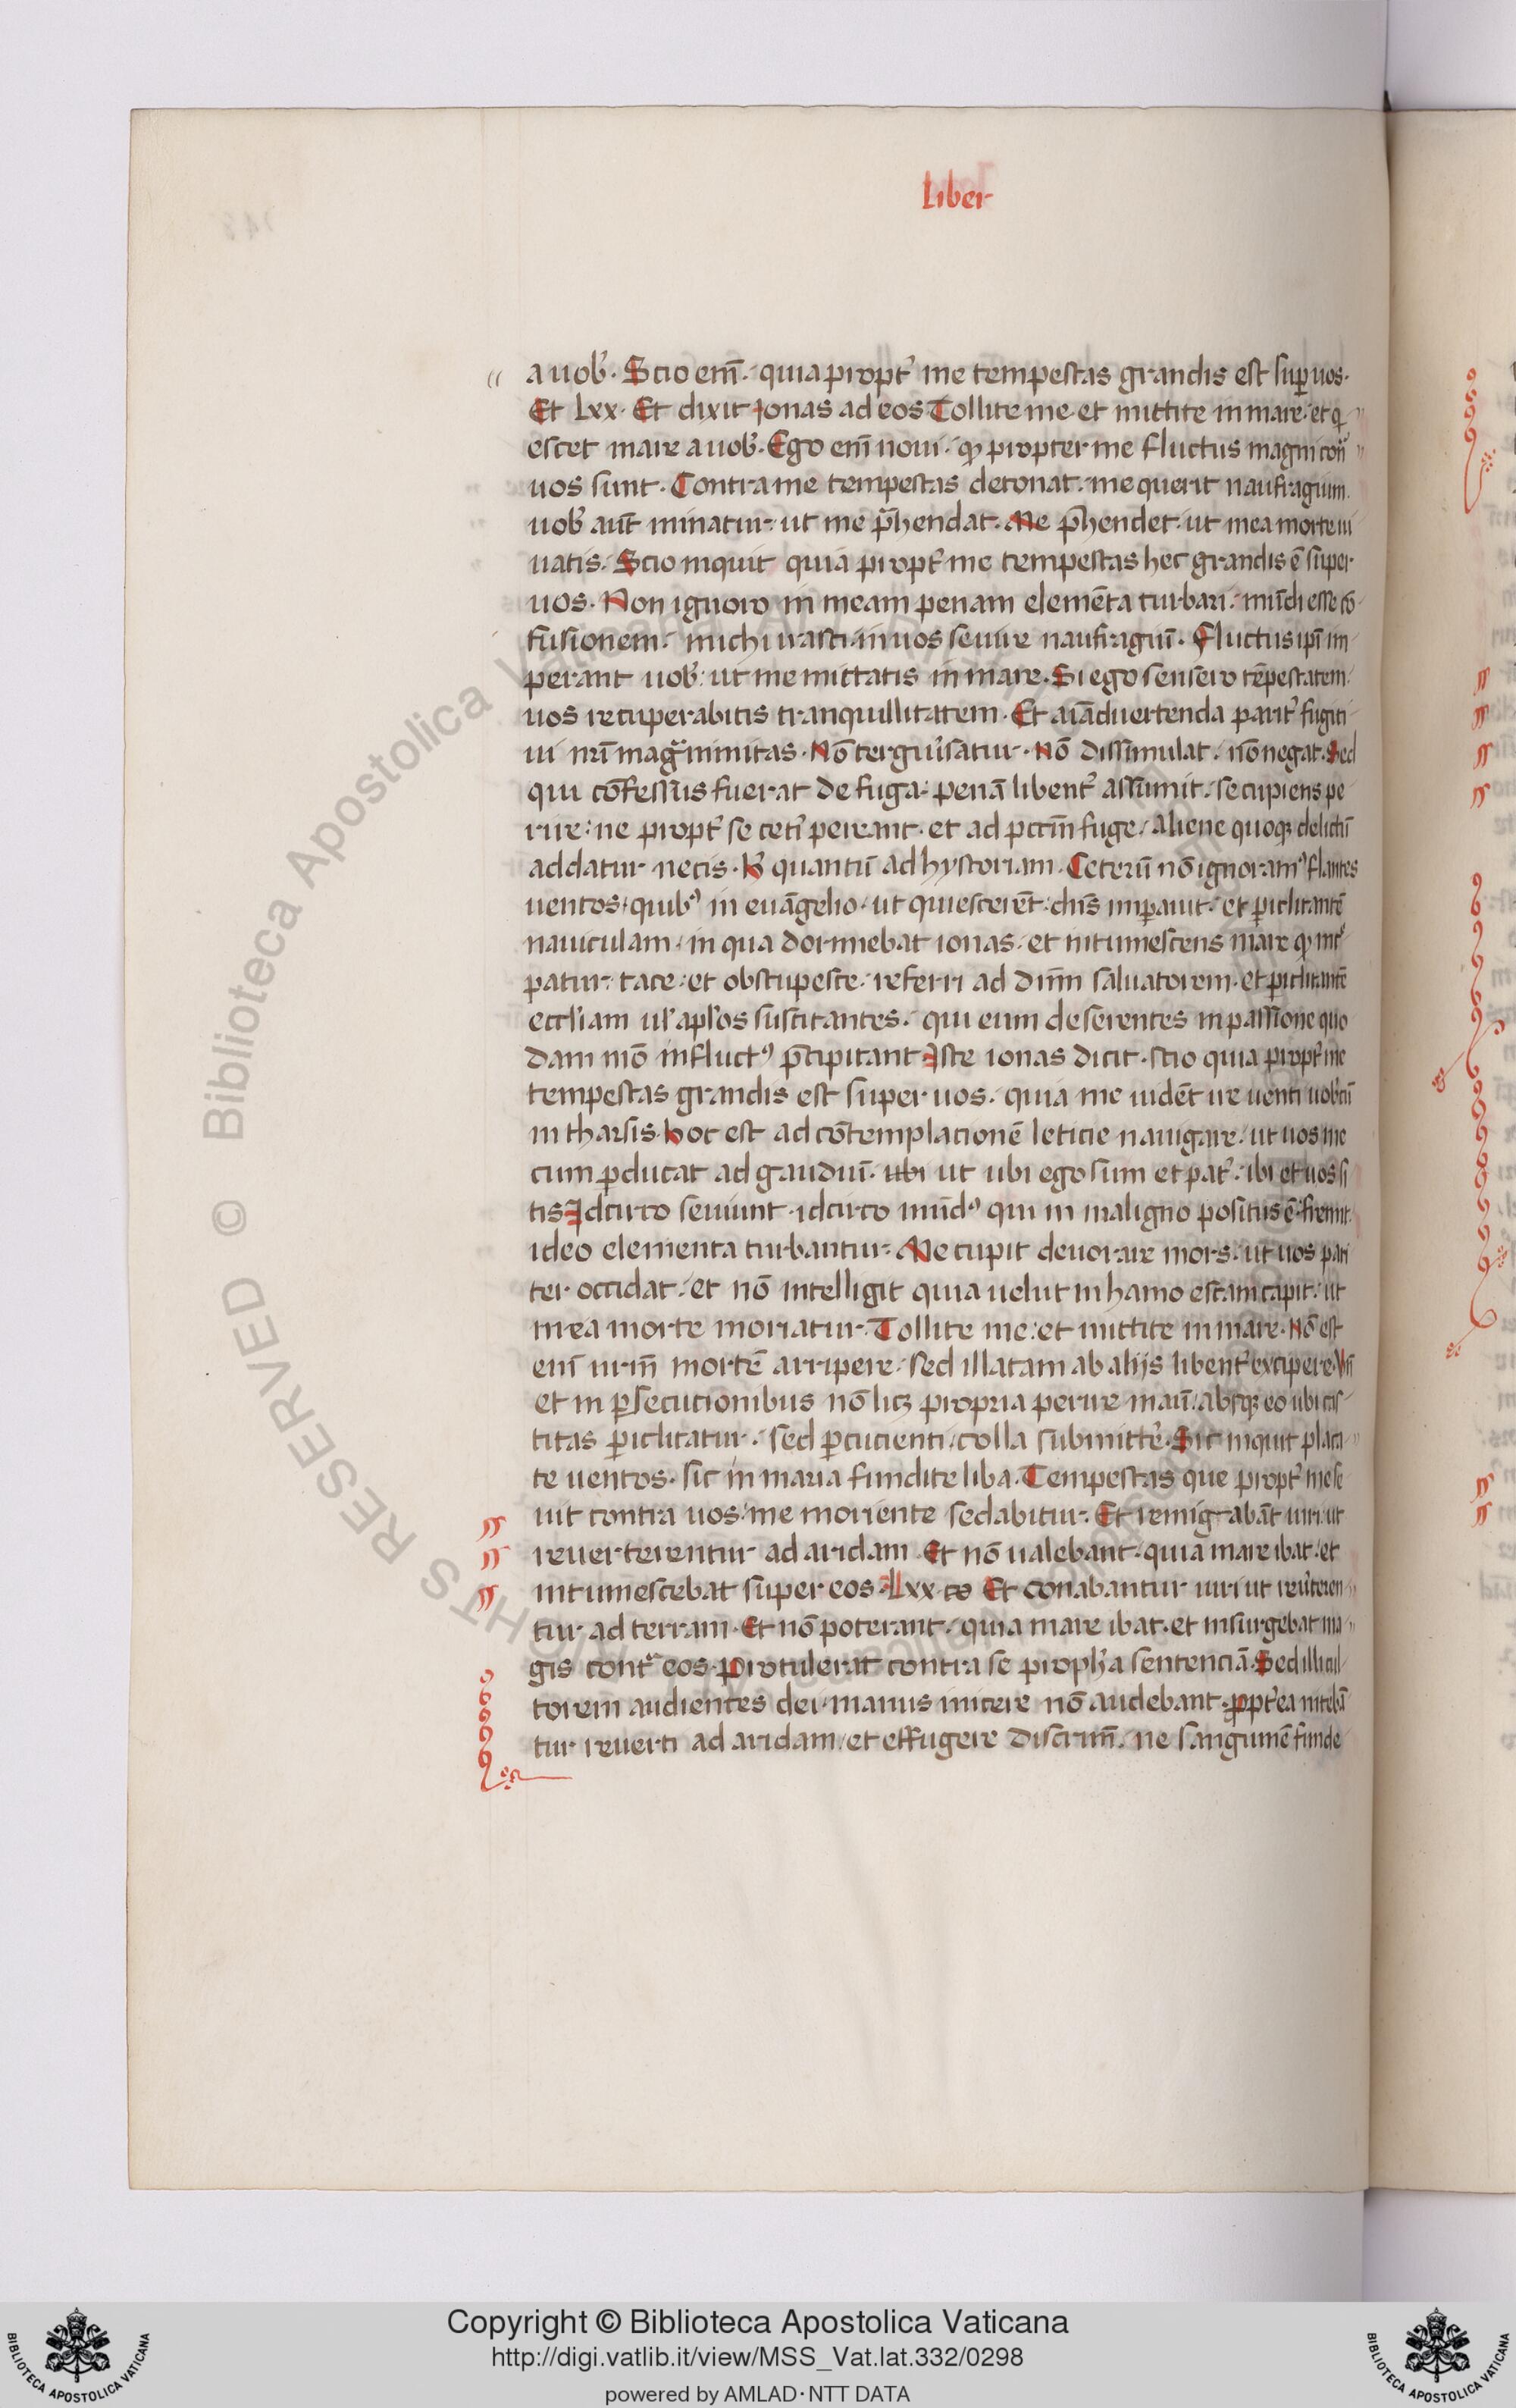 Liber
a uob̾. Scio em̄. quia propt̾ me tempestas grandis est sup̱ uos.
Et Lxx. Et dixit Jonas ad eos Tollite me et mittite in mare. et q̇
escet mare a uob̾. Ego em̄ noui. qꝫ propter me fluctus magni
uos sunt. Contra me tempestas detonat. me querit naufragium.
uob̾ aut̄ minatur. ut me p̄hendat. Me p̄hendet. ut mea morte ui
uatis. Scio inquit quia propt̾ me tempestas hec grandis ē super
uos. Non ignoro in meam penam elemēta turbari. mūdi esse cō
fusionem. michi irasci. in uos seuire naufragiū. Fluctus ip̄i im
perant uob̾. ut me mittatis in mare. Si ego sensero tēpestatem.
uos recuperabitis tranquillitatem. Et aīaduertenda parit̾ fugiti
ui nr̄i magnīmitas. Nō tergiu̾satur. Nō dissimulat. nō negat. Sed
qui cōfessus fuerat de fuga. penā libent̾ assumit. se cupiens pe
rire. ne propt̾ se cet̾i pereant. et ad pctm̄ fuge. aliene quoqꝫ
addatur necis. quantū ad hystoriam. Ceterū nō ignoramꝰ flantes
uentos. quibꝰ in euāgelio. ut quiescerēt. dn̄s imꝑauit. et ꝑiclitantē
nauiculam. in qua dormiebat ionas. et intumescens mare
patur. tace. et obstupesce. referri ad dn̄m saluatorem. et ꝑiclitantē
eccl̾iam ul̾ apl̾os suscitantes. qui eum deserentes in passione quo
dam mō in fluctꝰ p̄cipitant Iste ionas dicit. scio quia propt̾ me
tempestas grandis est super uos. quia me uidēt ire uenti uob̾cū
in tharsis. hoc est ad cōtemplacionē leticie nauigare. ut uos me
cum ꝑducat ad gaudiū. ubi ut ubi ego sum et pat̾. ibi et uos si
tis Idcirco seuiunt. idcirco mūdꝰ qui in maligno positus ē fremit.
ideo elementa turbantur. Me cupit deuorare mors. ut uos pari
ter occidat. et nō intelligit quia uelut in hamo escam capit. ut
mea morte moriatur. Tollite me. et mittite in mare. Nō est
eni nrm̄ mortē arripere. sed illatam ab alijs libent̾ excipere. Vn̄
et in ꝑsecutionibus nō licꝫ propria perire manū. absqꝫ eo ubi cas
titas ꝑiclitatur. sed ꝑcucienti. colla submitte̾. Sic inquit placa
te uentos. sic in maria fundite liba. Tempestas que propt̾ me se
uit contra uos. me moriente sedabitur. Et remigabāt uiri. ut
reuerterentur ad aridam. Et nō ualebant. quia mare ibat. et
intumescebat super eos. Lxx. co Et conabantur uiri ut reu̾teren
tur ad terram. Et nō poterant. quia mare ibat. et insurgebat ma
gis contᵃ eos. Protulerat contra se proph̾a sentenciā. Sed illi cul
torem audientes dei. manus inicere nō audebant. ꝓpt̾ea nitebā
tur reuerti ad aridam. et effugere discrim̄. ne sanguinē funde
Copyright © Biblioteca Apostolica Vaticana
http://digi.vatlib.it/view/MSS_Vat.lat.332/0298
powered by AMLAD·NTT DATA